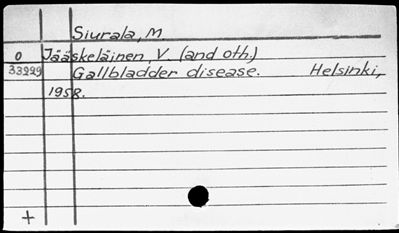 Siurala, M.
0 Jääskeläinen, V. (and oth.)
33999 Gallbladder disease. Helsinki,
1958.
+